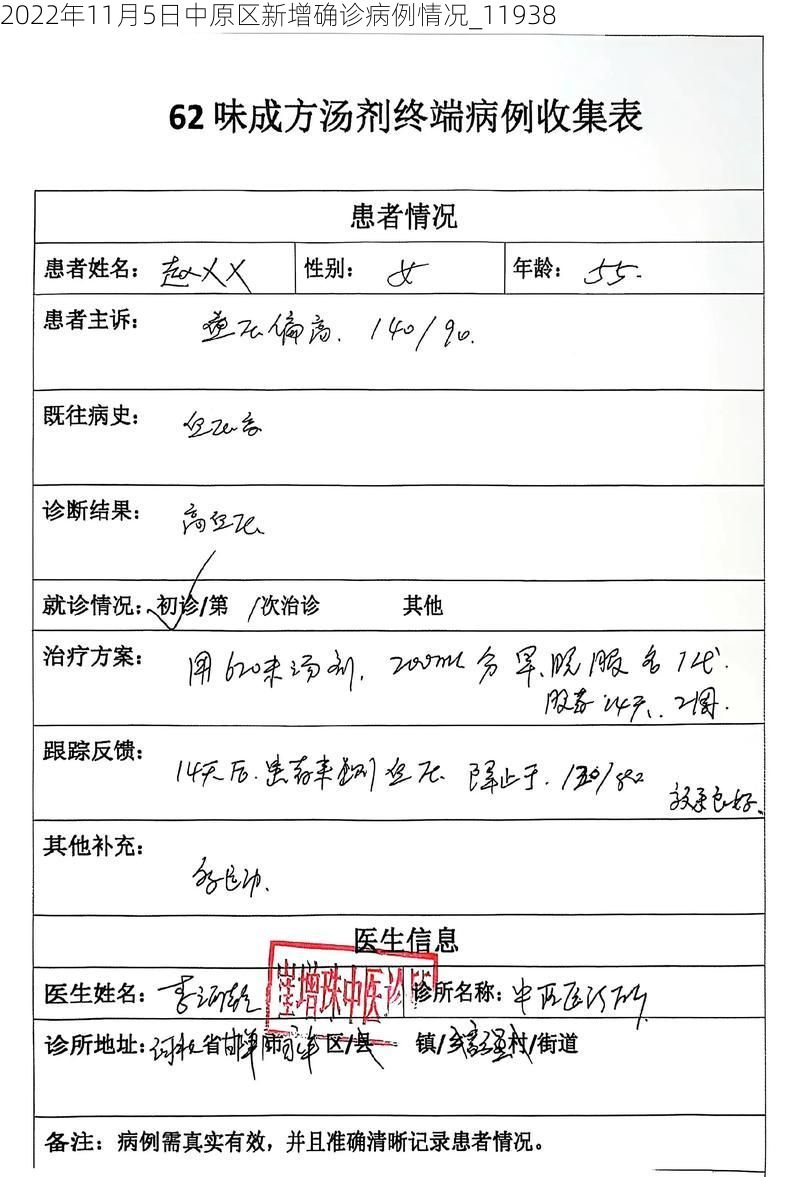 2022年11月5日中原区新增确诊病例情况_11938
62味成方汤剂终端病例收集表
患者情况
患者姓名：赵XX 性别：女 年龄：55.
患者主诉：血压偏高. 140/90.
既往病史：血压高
诊断结果：高血压
就诊情况：初诊/第 /次治诊 其他
治疗方案：用62味汤剂, 200ml分早、晚服各1代.
服药14天、2周.
跟踪反馈：14天后.患者来测血压 降止于.
效果良好.
其他补充：
医生信息
医生姓名：李 崔增珠中医诊所 诊所名称：中医诊所
诊所地址：河北省邯郸市 区/县 镇/乡 村/街道
备注：病例需真实有效，并且准确清晰记录患者情况。